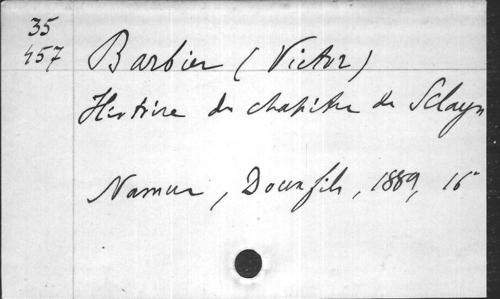 35
457
Barbier (Victor)
Histoire du chapitre de Sclayn
Namur, Douxfils, 1889, 16°